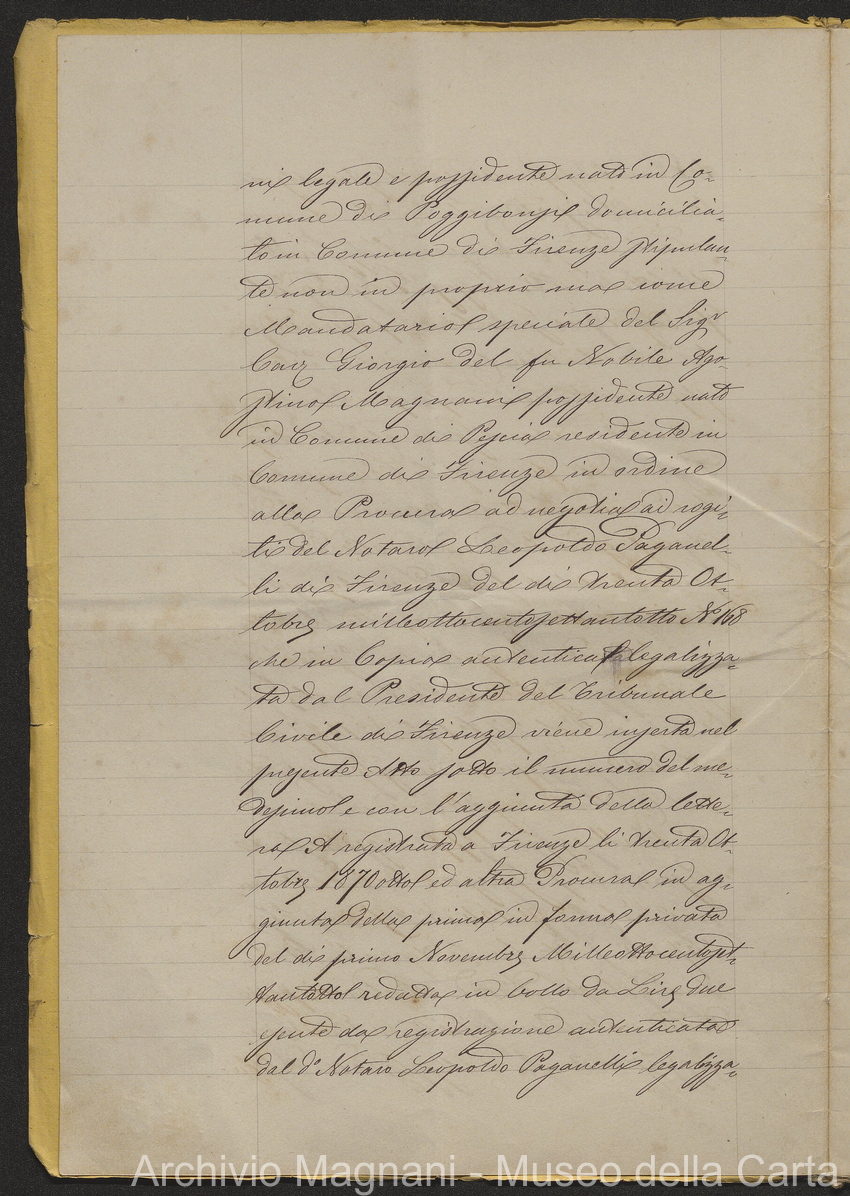 ni legale e possidente nato in Co-
mune di Poggibonsi domicilia-
to in Comune di Firenze stipulan-
te non in proprio ma come
Mandatario speciale del Sigr
Cav Giorgio del fu Nobile Ago-
stino Magnani possidente nato
in Comune di Pescia residente in
Comune di Firenze in ordine
alla Procura ad negotia ai rogi-
ti del Notaro Leopoldo Paganel-
li di Firenze del di trenta Ot-
tobre milleottocentosettantotto No 168
che in Copia autentica legalizza-
ta dal Presidente del Tribunale
Civile di Firenze viene inserta nel
presente Atto sotto il numero del me-
desimo e con l'aggiunta della lette-
ra A registrata a Firenze li trenta Ot-
tobre 1870otto ed altra Procura in ag-
giunta della prima in forma privata
del di primo Novembre Milleottocentoset-
tantotto redatta in bollo da Lire due
esente da registrazione autenticata
dal do Notaro Leopoldo Paganelli legalizza-
Archivio Magnani - Museo della Carta